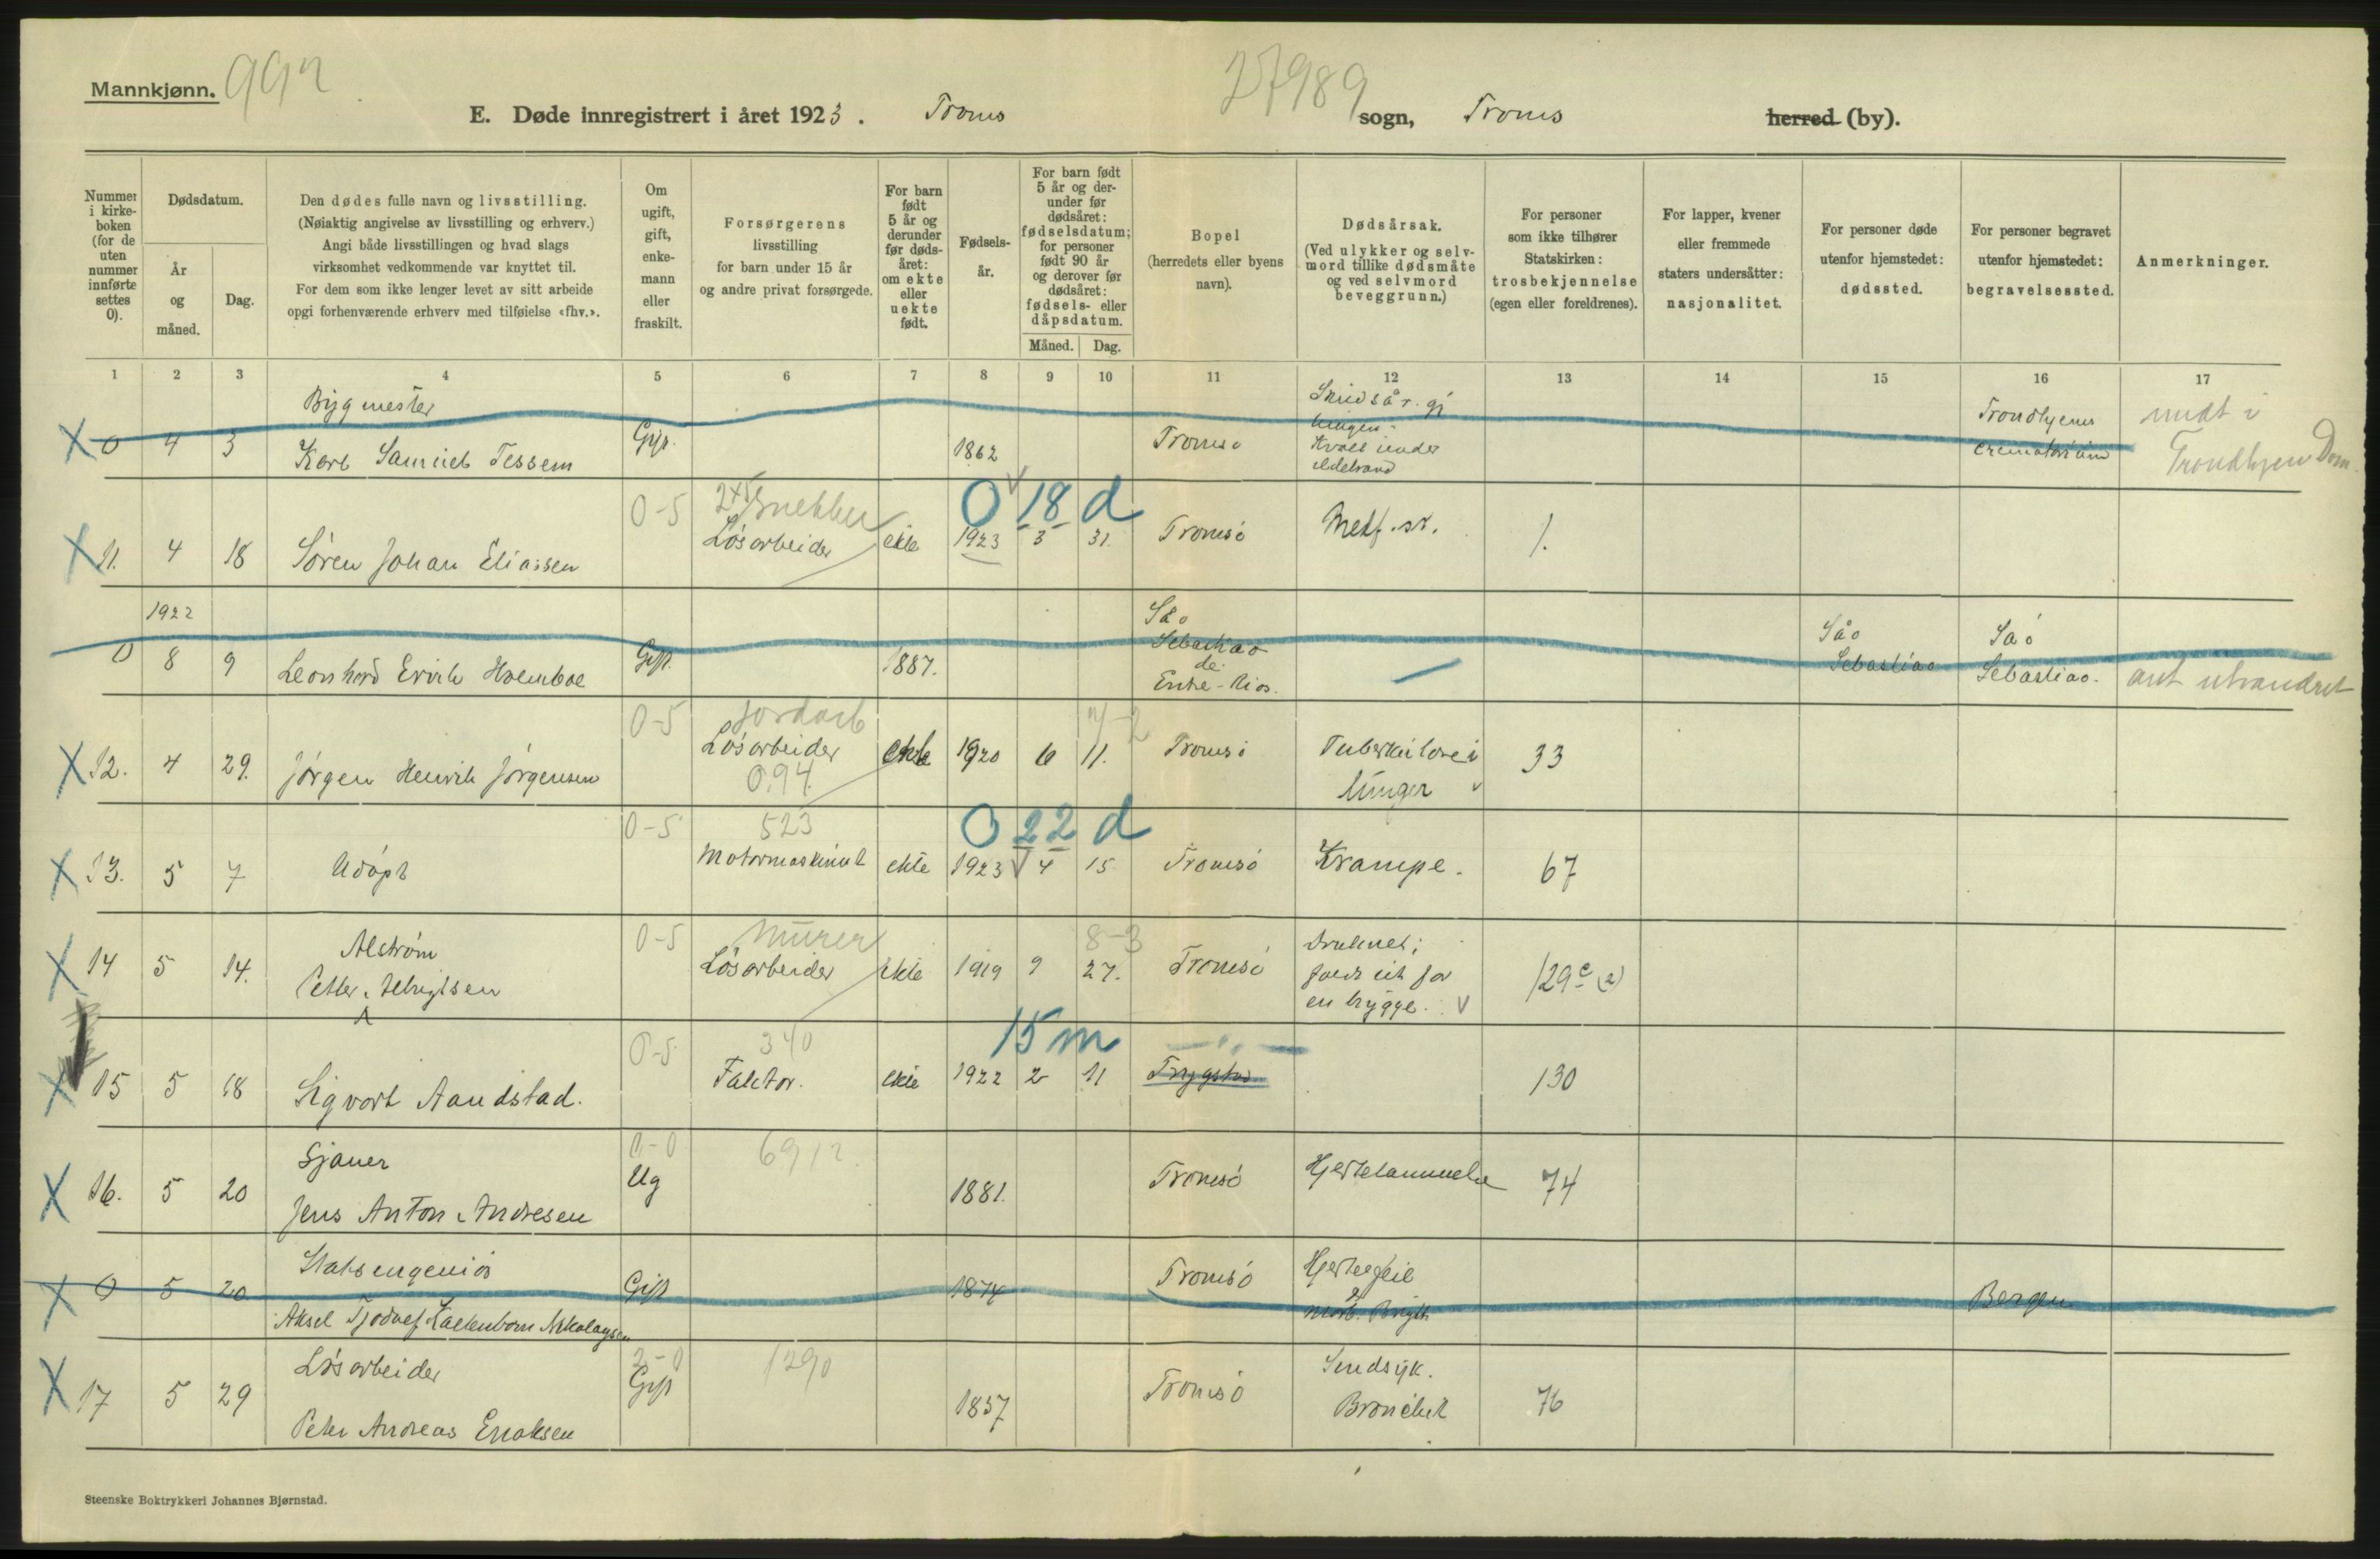 Mannkjønn. 992
27989
E. Døde innregistrert i året 1923. Troms sogn, Troms herred (by).
Nummer i kirke-boken (for de uten nummer innførte settes 0).
Dødsdatum.
År og måned.
Dag.
Den dødes fulle navn og livsstilling.
(Nøiaktig angivelse av livsstilling og erhverv.)
Angi både livsstillingen og hvad slags
virksomhet vedkommende var knyttet til.
For dem som ikke lenger levet av sitt arbeide
opgi forhenværende erhverv med tilføielse «fhv.».
Om ugift, gift, enke-mann eller fraskilt.
Forsørgerens
livsstilling
for barn under 15 år
og andre privat forsørgede.
For barn født 5 år og derunder før døds-året: om ekte eller uekte født.
Fødsels-år.
For barn født 5 år og der-under før dødsåret: fødselsdatum; for personer født 90 år og derover før dødsåret: fødsels- eller dåpsdatum.
Måned.
Dag.
Bopel
(herredets eller byens
navn).
Dødsårsak.
(Ved ulykker og selv-
mord tillike dødsmåte
og ved selvmord
beveggrunn.)
For personer
som ikke tilhører
Statskirken:
trosbekjennelse
(egen eller foreldrenes).
For lapper, kvener
eller fremmede
staters undersåtter:
nasjonalitet.
For personer døde
utenfor hjemstedet:
dødssted.
For personer begravet
utenfor hjemstedet:
begravelsessted.
Anmerkninger.
1 2 3 4 5 6 7 8 9 10 11 12 13 14 15 16 17
Bygmester
X 0 4 3 Karl Samuel Tessem Gift. 1862 Tromsø
Kvalt under
ildebrand
Trondhjem
crematorium
Trondhjem Dom.
0-5 Snekker 0 18 d
X 11. 4 18 Søren Johan Eliassen Løsarbeider ekte 1923 3 31. Tromsø Medf. sv. 1.
1922
0 8 9 Leonhard Ervik Holmboe Gift. 1887.
São
Sebastiao
de
Entre-Rios.
São
Sebastiao
São
Sebastiao.
ant utvandret
0-5 Jordarb
X 12. 4 29. Jørgen Henrik Jørgensen Løsarbeider ekte 1920 6 11. Tromsø Tuberkulose i 33
094. lunger
0-5 523 0 22 d
X 13. 5 7 Udøpt Motormaskinist ekte 1923 4 15. Tromsø Krampe. 67
0-5 Murer 8-3
Alstrøm
X 14 5 14. Petter Albrigtsen Løsarbeider ekte 1919 9 27. Tromsø
Druknet;
faldt ut for
en brygge.
129 c (2)
0-5 340 15 m
X 15 5 18 Sigvart Aandstad. Faktor. ekte 1922 2 11 Trygstad 130
0-0 6912.
Sjauer
X 16. 5 20 Jens Anton Andresen Ug 1881. Tromsø Hjertelammelse 74
Statsengeniør
X 0 5 20 Aksel Tjodolf Nikolaysen Gift 1874 Tromsø
Hjertefeil
morb. Brigth
Bergen
2-0 1290
Løsarbeider
X 17 5 29 Peter Andreas Enoksen Gift 1857 Tromsø
Sindsyk.
Bronchit
76
Steenske Boktrykkeri Johannes Bjørnstad.